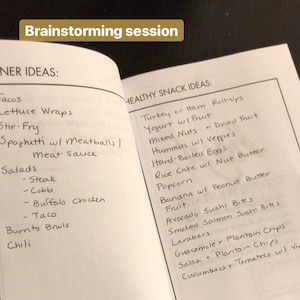 Brainstorming session
NER IDEAS:
Tacos
Lettuce Wraps
Stir-Fry
Spaghetti w/ Meatballs /
Meat Sauce
Salads
- Steak
- Cobb
- Buffalo Chicken
- Taco
Burrito Bowls
Chili
HEALTHY SNACK IDEAS:
Turkey or Ham Roll-Ups
Yogurt w/ Fruit
Mixed Nuts + Dried Fruit
Hummus w/ Veggies
Hard-Boiled Eggs
Rice Cake w/ Nut Butter
Popcorn
Banana w/ Peanut Butter
Fruit
Avocado Sushi Bites
Smoked Salmon Sushi Bites
Larabars
Guacamole + Plantain Chips
Salsa + Plantain Chips
Cucumbers + Tomatoes w/